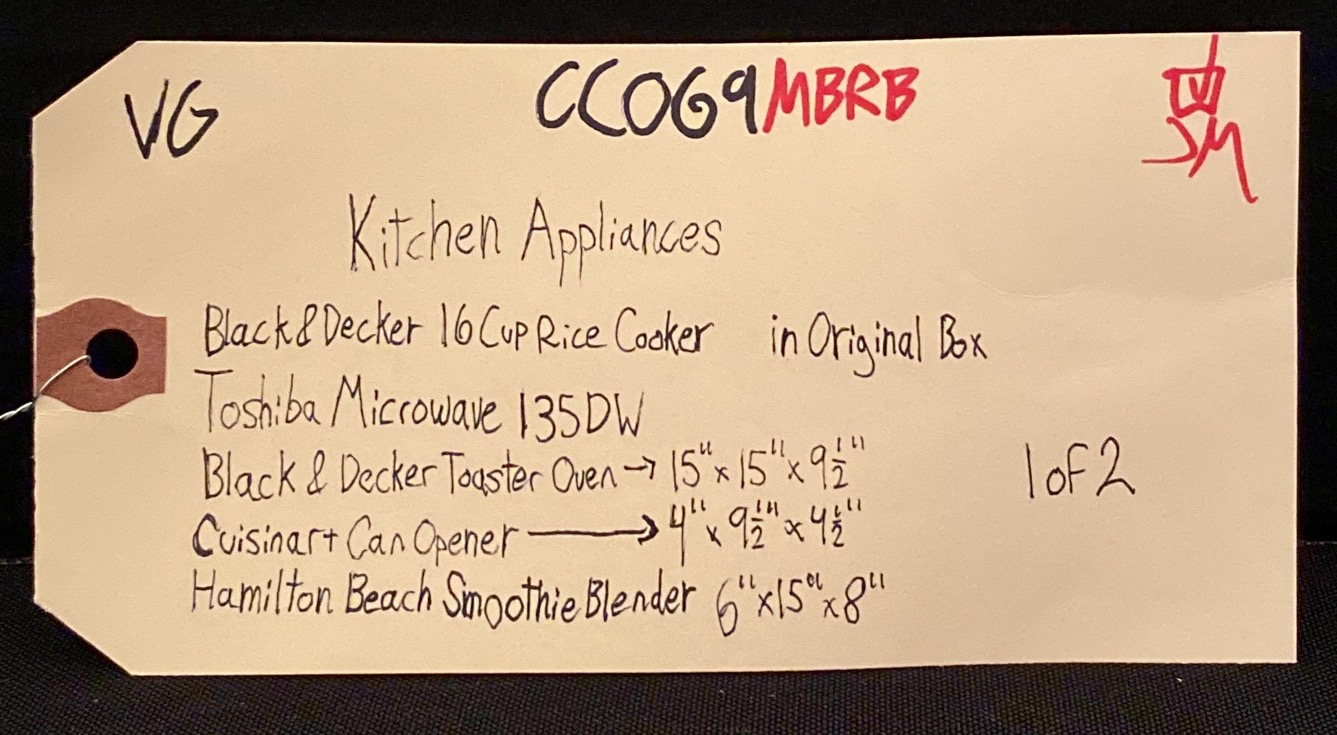 VG
CC069MBRB
JM
Kitchen Appliances
Black & Decker 16 Cup Rice Cooker in Original Box
Toshiba Microwave 135DW
Black & Decker Toaster Oven → 15" x 15" x 9½"
1 of 2
Cuisinart Can Opener → 4" x 9½" x 4½"
Hamilton Beach Smoothie Blender 6" x 15" x 8"